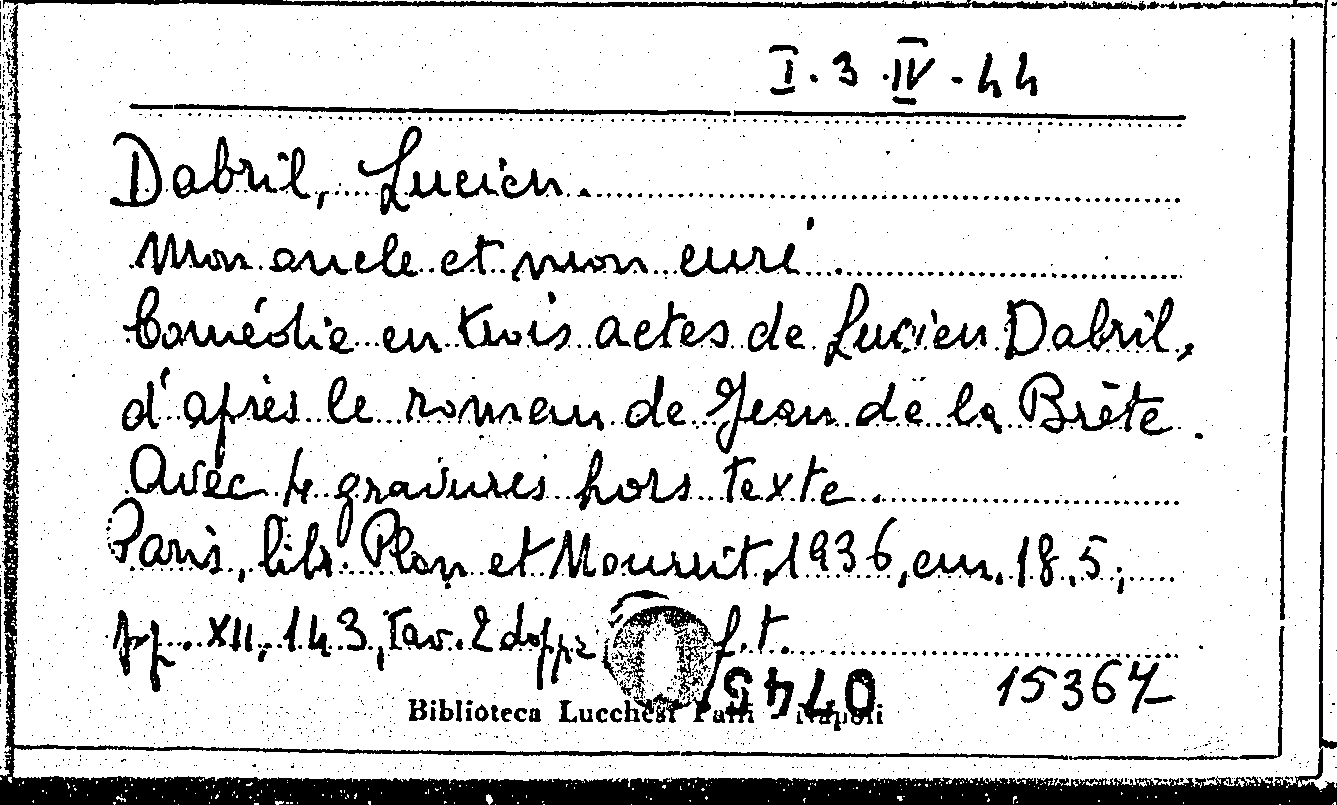 I. 3. IV - 44
Dabril, Lucien.
Mon oncle et mon curé.
Comédie en trois actes de Lucien Dabril,
d'après le roman de Jean de la Brète.
Avec 4 gravures hors texte.
Paris, libr. Plon et Nourrit, 1936, cm. 18,5;
pp. XII, 143, Tav. 2 doppie f.t.
15364
Biblioteca Lucchesi Palli Napoli